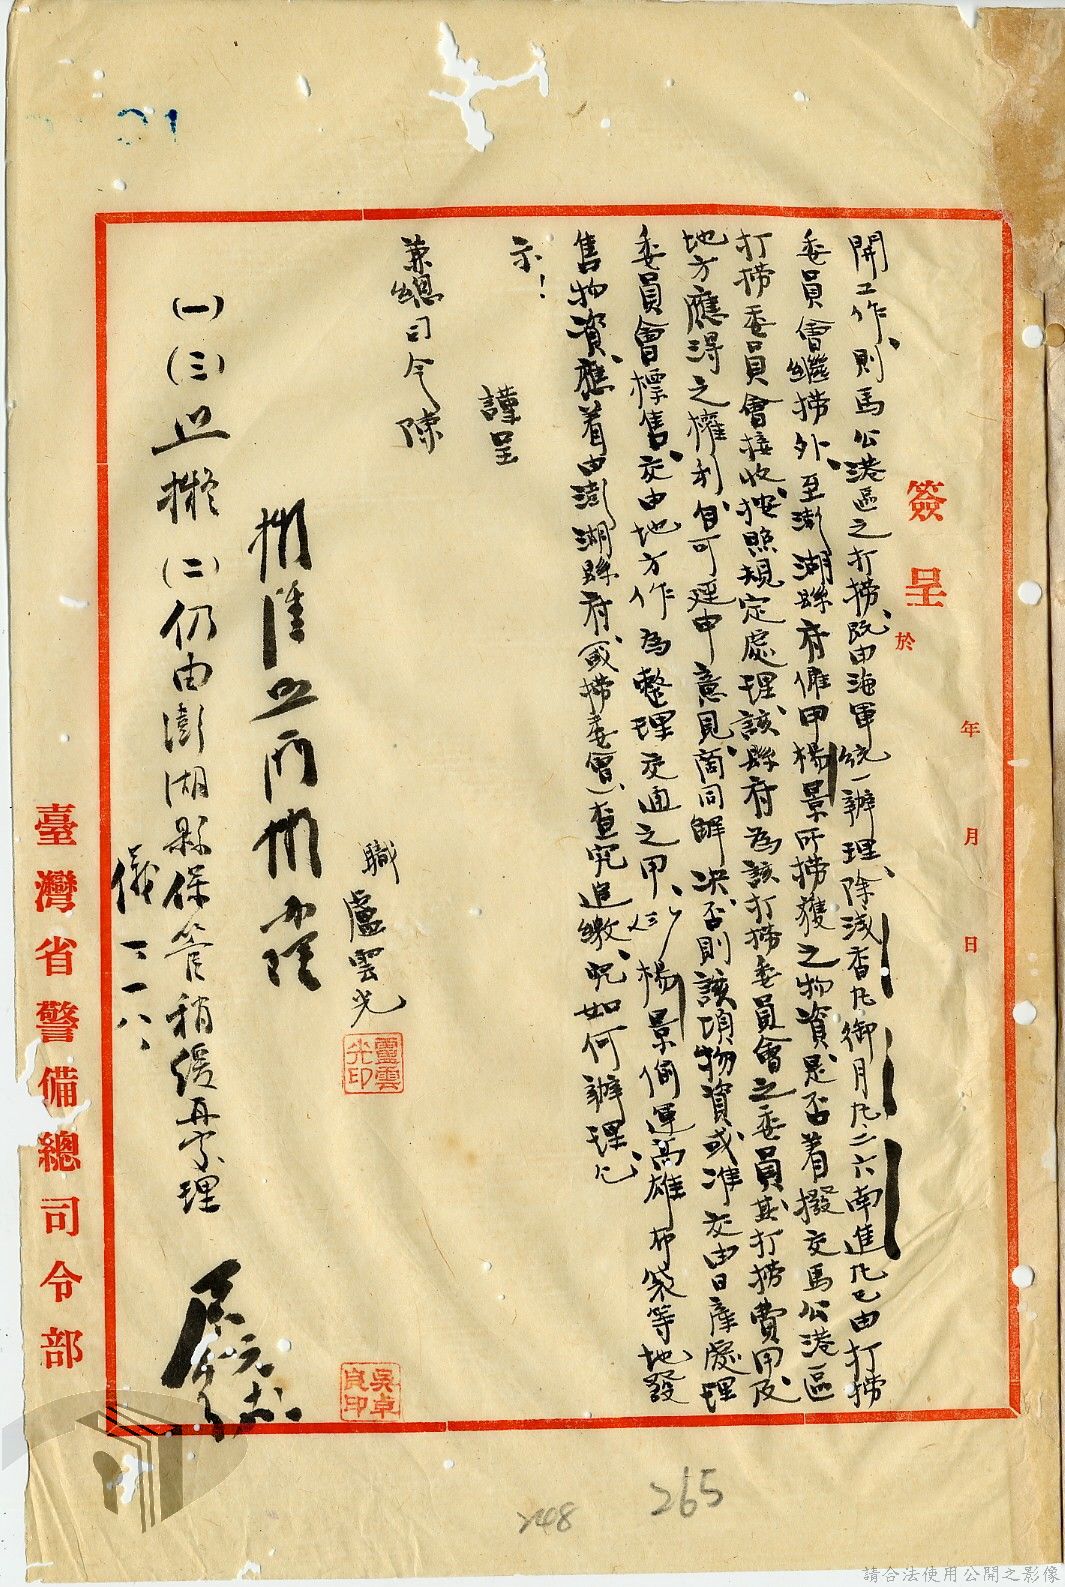 簽呈 於 年 月 日
開工作、則馬公港區之打撈、既由海軍統一辦理、除淺香丸御月丸、二六南進丸已由打撈
委員會繼撈外、至澎湖縣府僱甲楊景所撈獲之物資、是否着撥交馬公港區
打撈委員會接收、按照規定處理、該縣府為該打撈委員會之委員、其打撈費用及
地方應得之權利、自可逕申意見、商同解決、否則該項物資或準交由日產處理
委員會標售、交由地方作為整理交通之用、(三)楊景倘運高雄布袋等地發
售物資、應着由澎湖縣府(或撈委會)查究追繳、究如何辦理、乞
示!
謹呈
兼總司令陳
職盧雲光
盧雲光印
(一)(三)照擬(二)仍由澎湖縣保管稍緩再行處理
儀 一一八、
吳卓良印
臺灣省警備總司令部
248
265
請合法使用公開之影像